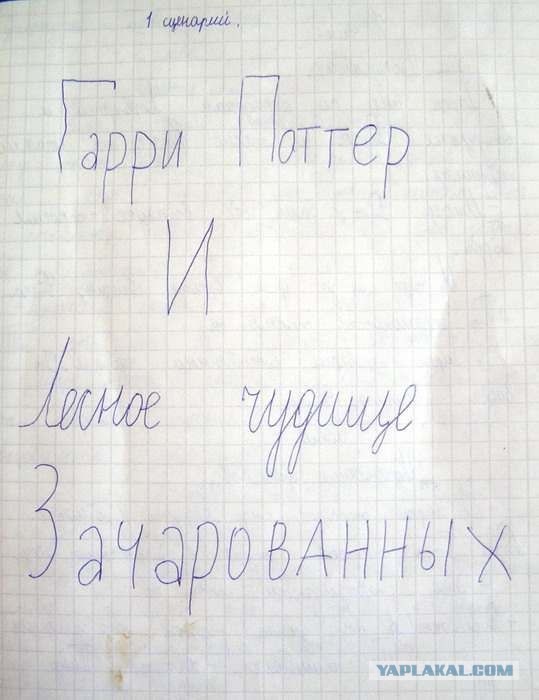 1 сценарий.
Гарри Поттер
И
Лесное чудище
Зачарованных
YAPLAKAL.COM